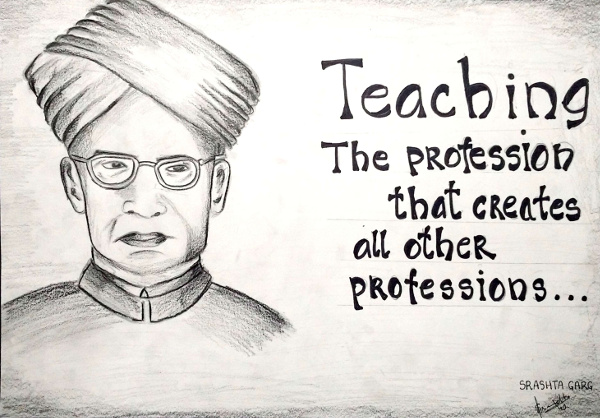 Teaching
The profession
that creates
all other
professions...
SRASHTA GARG